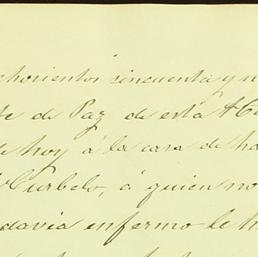 chocientos cincuenta y n
de Paz de esta
de hoy á la casa de ha
Curbelo, á quien no
davia enfermo le h